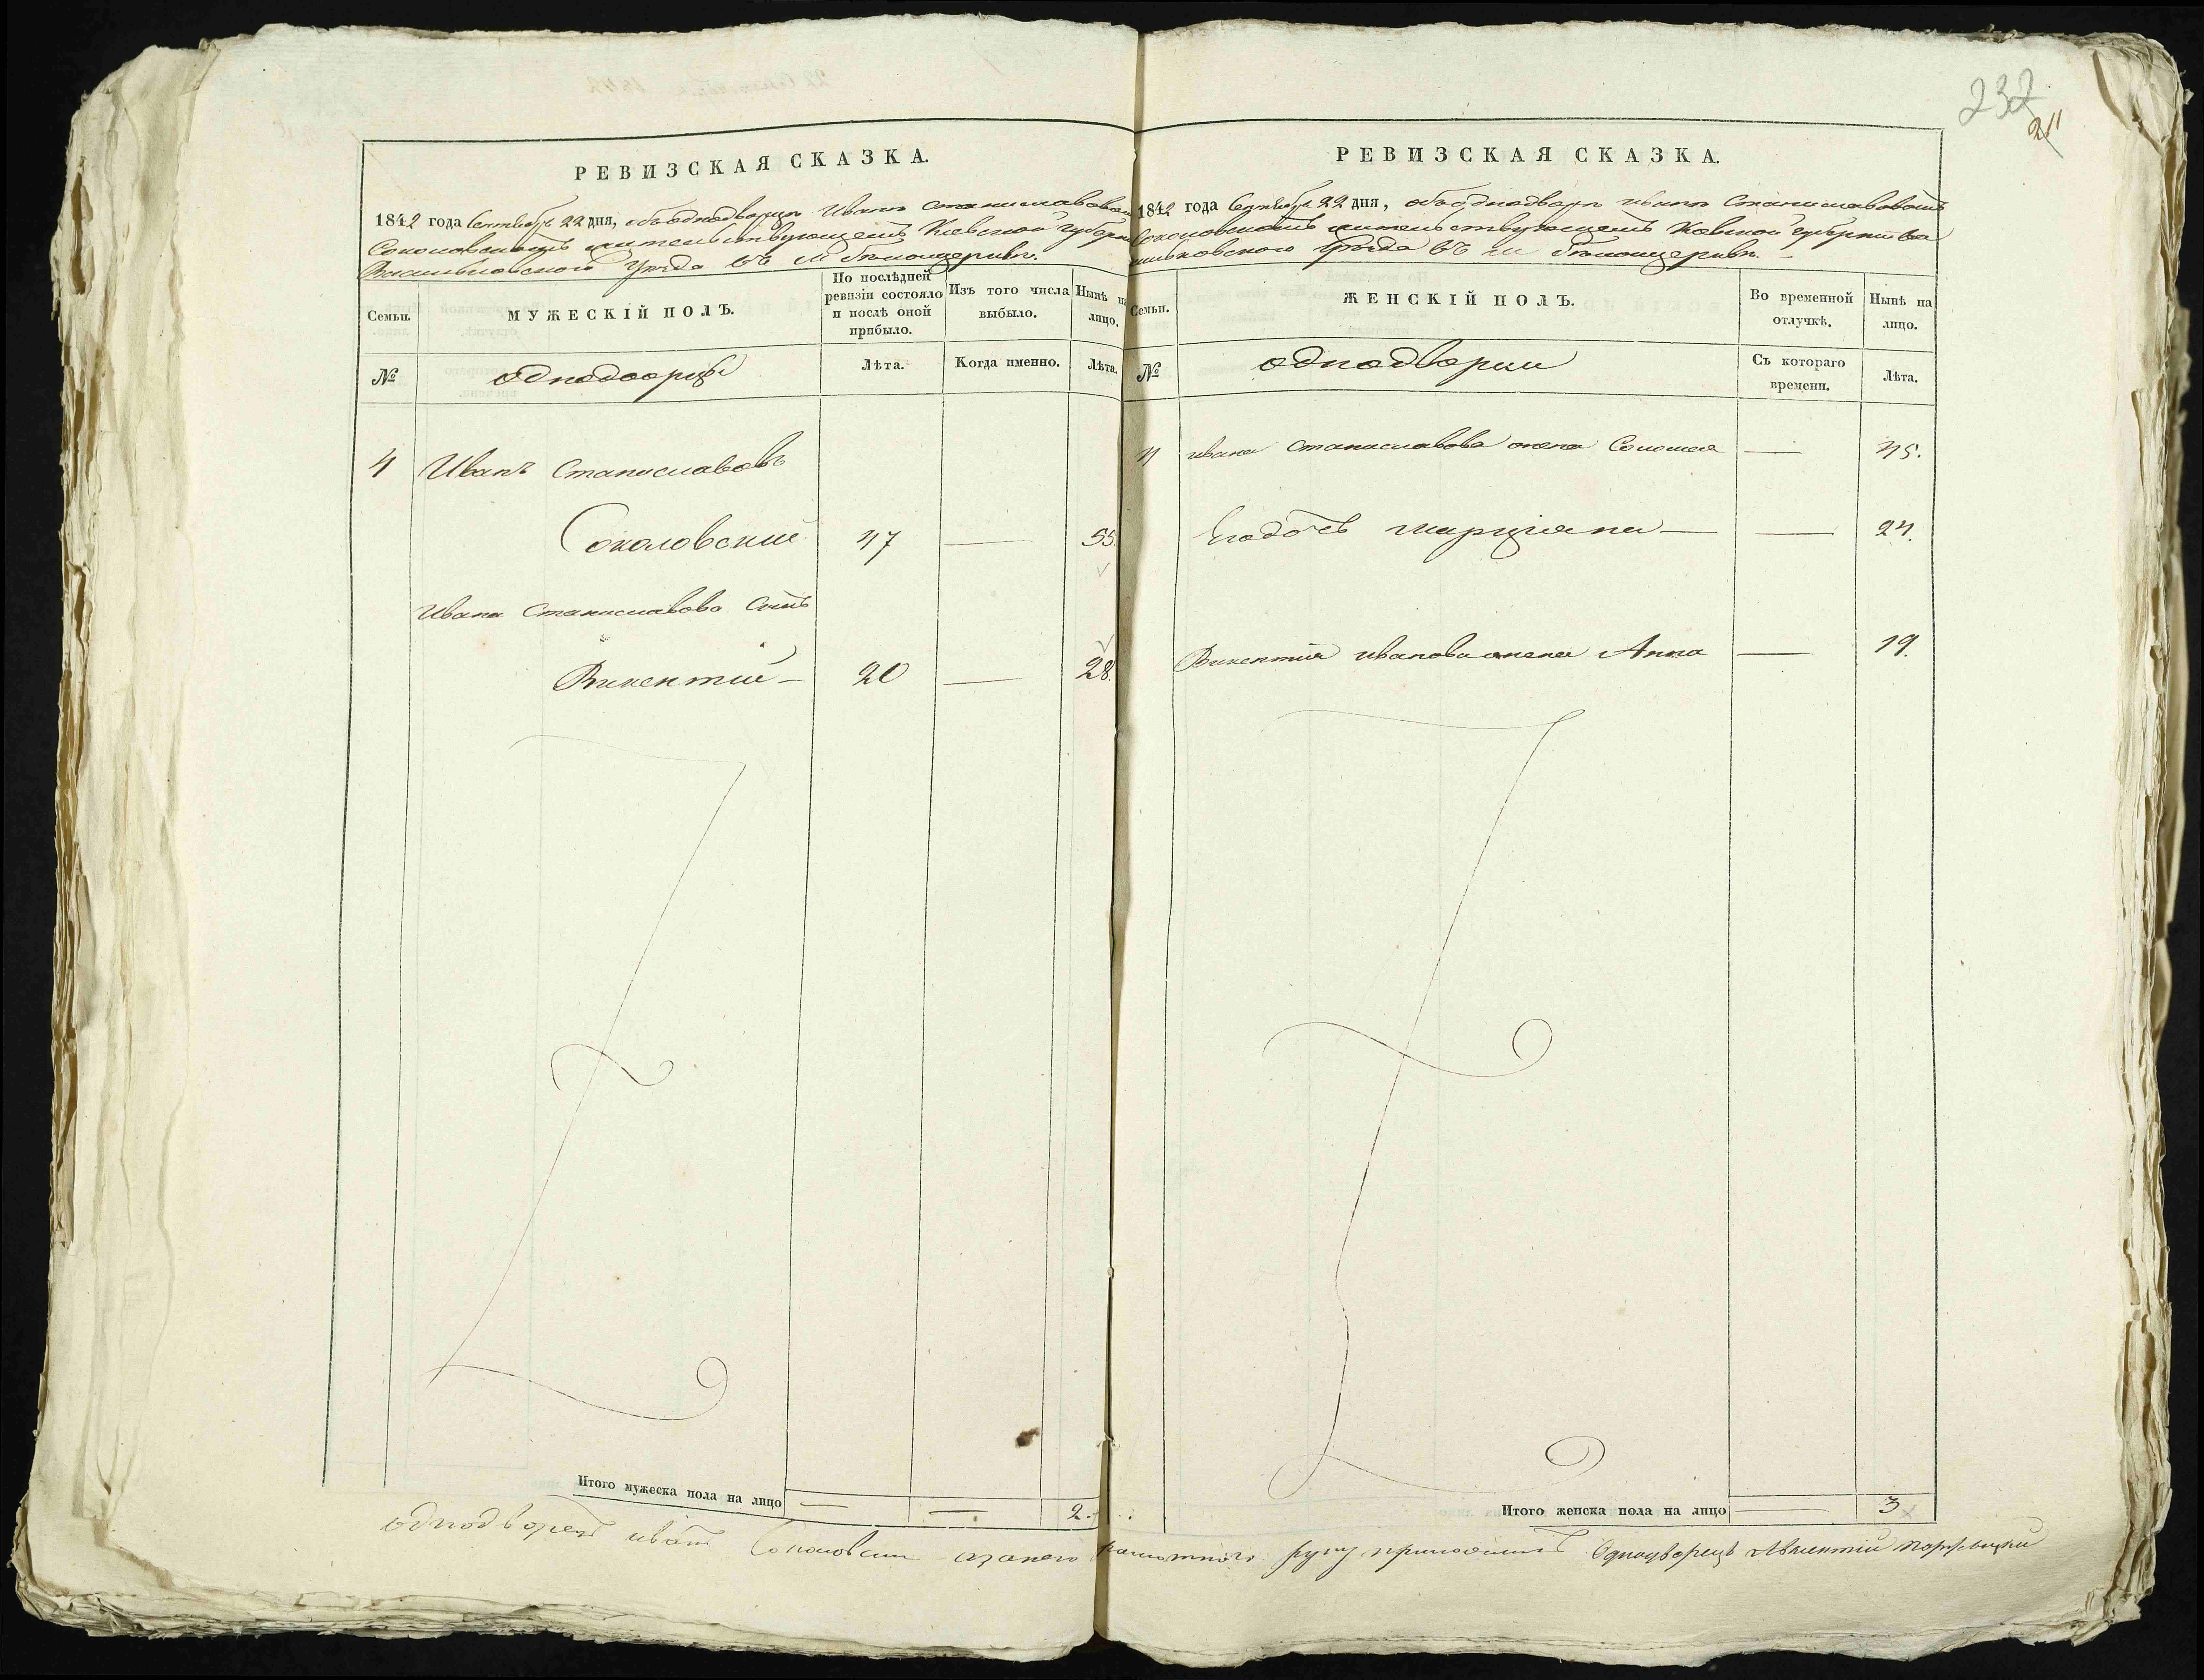 232
211
РЕВИЗСКАЯ СКАЗКА.
1842 года Сентября 22 дня, объ однодворцѣ Иванѣ Станиславовомъ
Соколовскомъ жительствующемъ Кіевской Губерніи
Васильковскаго уѣзда въ м Бѣлоцерквѣ.
Семьи.
МУЖЕСКІЙ ПОЛЪ.
По послѣдней ревизіи состояло и послѣ оной прибыло.
Изъ того числа выбыло.
Нынѣ на лицо.
№
однодворцы
Лѣта.
Когда именно.
Лѣта.
4 Иванъ Станиславовъ
Соколовский 47 — 55
Ивана Станиславова Сынъ
Викентий — 20 — 28.
Итого мужеска пола на лицо — — 2.
РЕВИЗСКАЯ СКАЗКА.
1842 года Сентября 22 дня, объ однодворцѣ Иванѣ Станиславовомъ
Соколовскомъ жительствующемъ Кіевской губерніи Ва
сильковского уѣзда въ м Бѣлоцерквѣ.
Семьи.
ЖЕНСКІЙ ПОЛЪ.
Во временной отлучкѣ.
Нынѣ на лицо.
№
однодворки
Съ котораго времени.
Лѣта.
4 ивана Станиславова жена Соломея — 45.
доčь Марціяна — — 24.
Викентия иванова жена Анна — 19.
Итого женска пола на лицо — 3
однодворецъ иванъ Соколовски азанего неграмотного руку приложилъ Однодворецъ